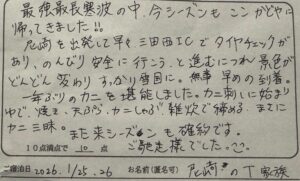 最強最長寒波の中、今シーズンも ここ かどやに
帰ってきました!!
尼崎を出発して早く三田西ICでタイヤチェックが
あり、のんびり安全に行こう、と進むにつれ景色が
どんどん変わり すっかり雪国に。無事 早めの到着。
一年ぶりのカニを堪能しました。カニ刺しに始まり
ゆで、焼き、天ぷら、カニしゃぶ、雑炊で締める、まさに
カニ三昧。
また来シーズンも確約です。
ご馳走様でした。
10点満点で 10 点
ご宿泊日 2026.1/25.26
お名前(匿名可) 尼崎市のT家族